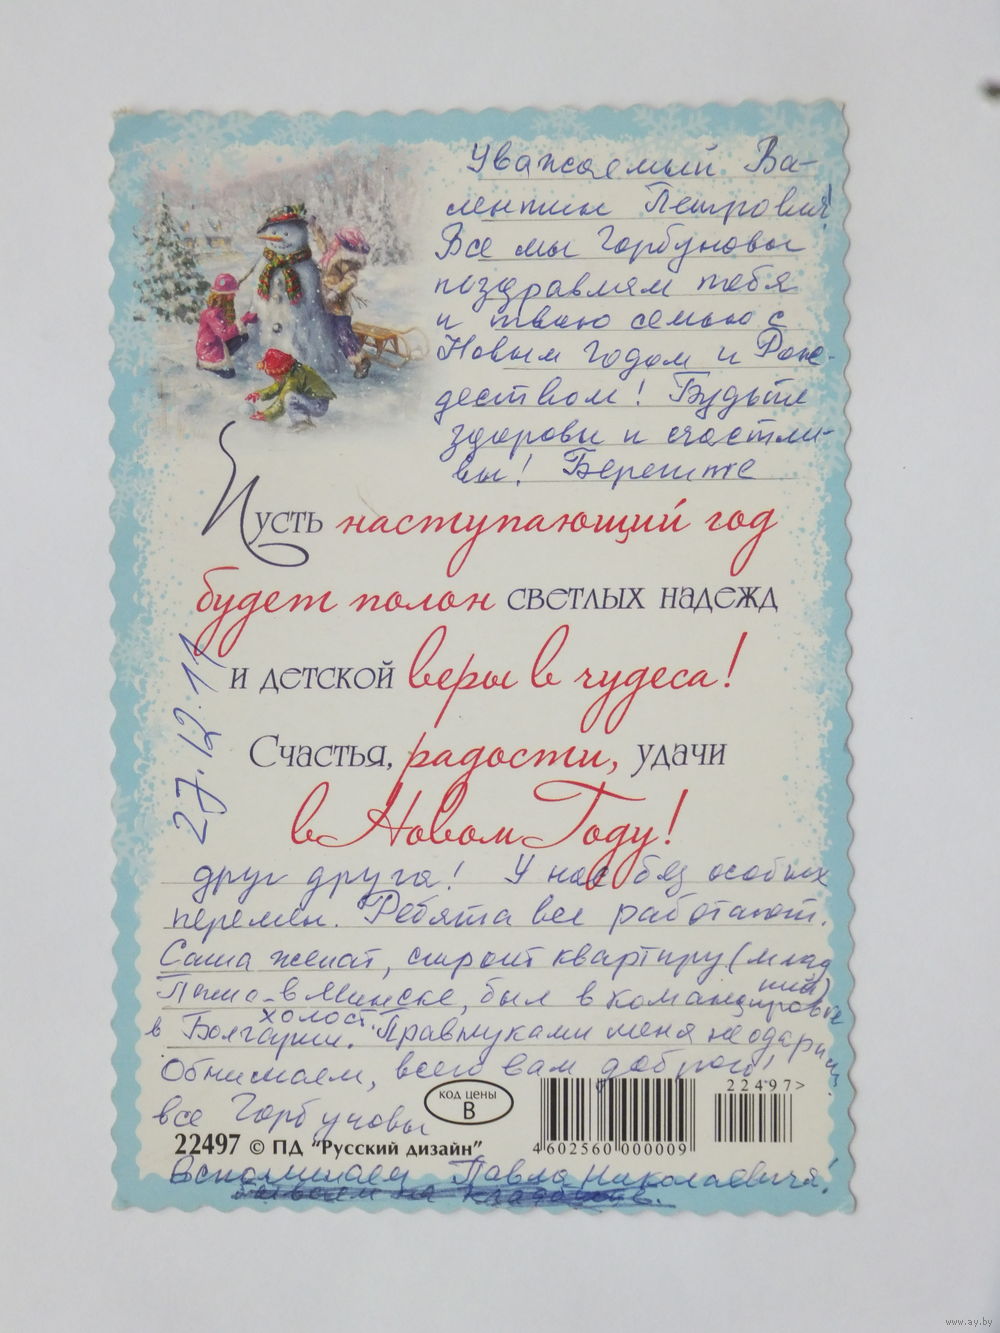 Уважаемый Ва-
лентин Петрович!
Все мы Горбуновы
поздравляем тебя
и твою семью с
Новым годом и Рож-
деством! Будьте
здоровы и счастли-
вы! Берегите
Пусть наступающий год
будет полон светлых надежд
и детской веры в чудеса!
Счастья, радости, удачи
в Новом Году!
27.12.11
друг друга! У нас без особых
перемен. Ребята все работают.
Саша женат, строит квартиру (млад
ший)
Паша - в Минске, был в командировке
холост.
в Болгарии. Правнуками меня не одарили
Обнимаем, всего вам доброго!
все Горбуновы
код цены
В
22497>
4 602560 000009
22497 © ПД "Русский дизайн"
Вспоминаем Павла Николаевича!
Бываем на кладбище.
www.ay.by